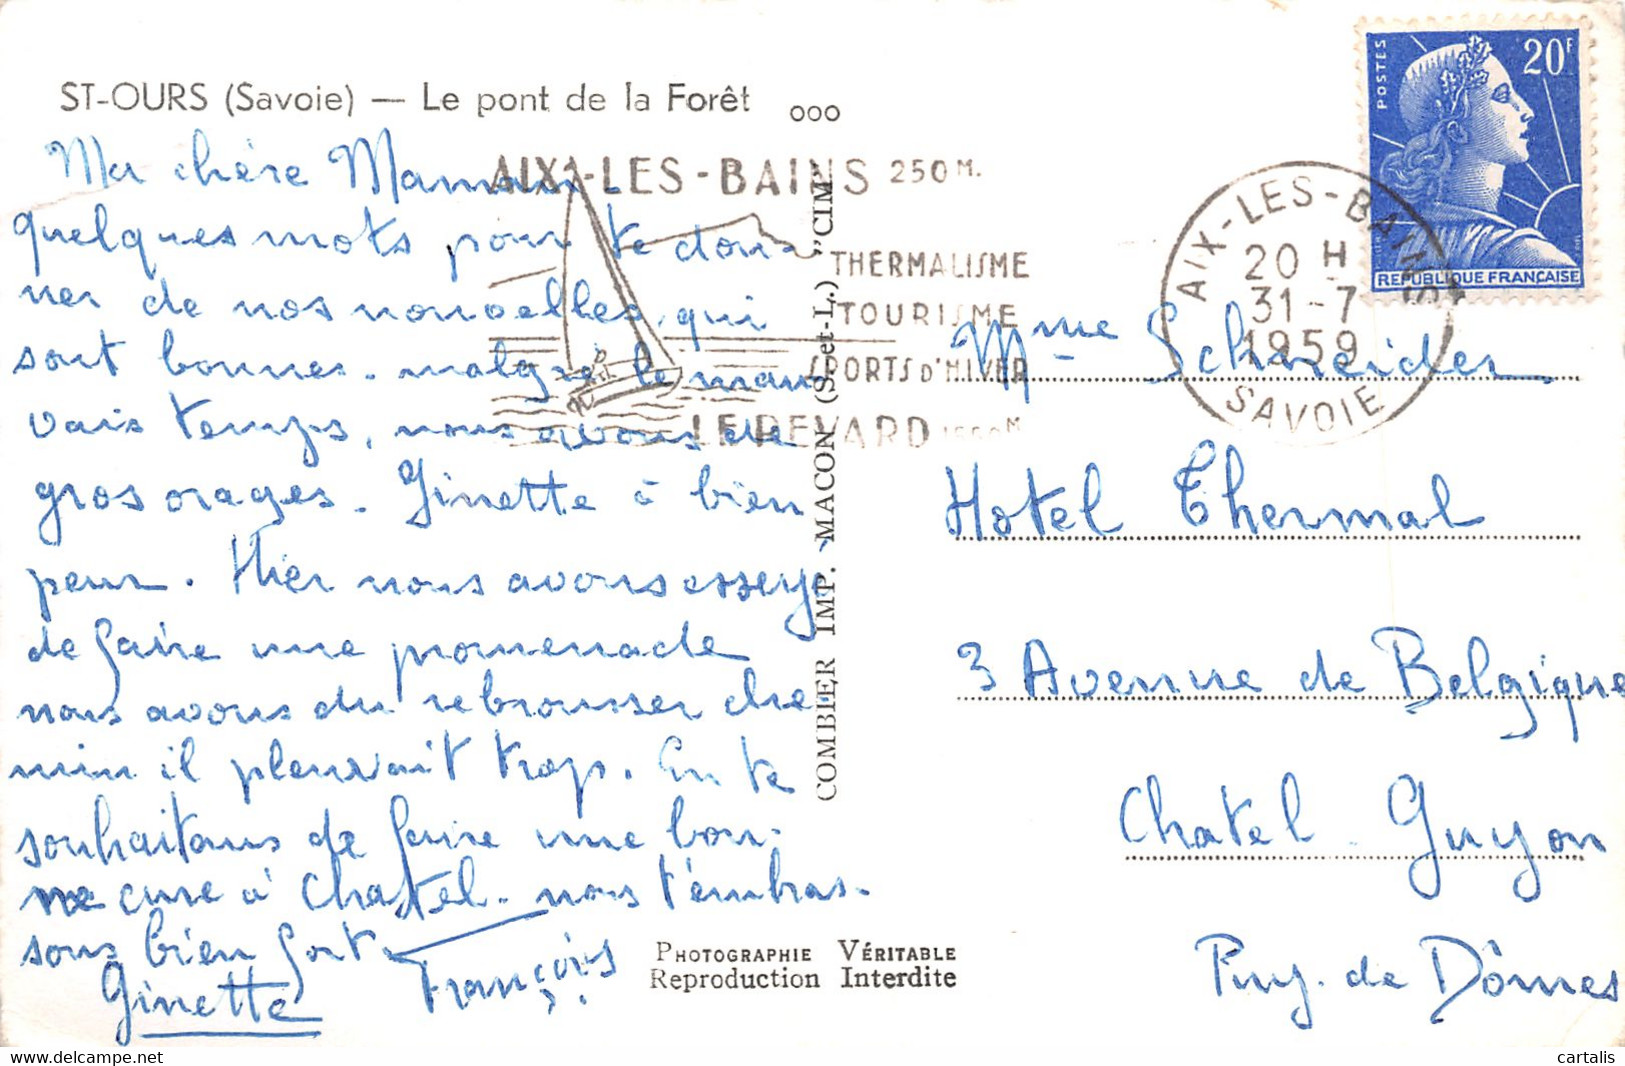 ST-OURS (Savoie) — Le pont de la Forêt
ooo
Ma chère Maman -
quelques mots pour te don-
ner de nos nouvelles, qui
sont bonnes. malgré le mau
vais temps, nous avons de
gros orages. Ginette à bien
peur. Hier nous avons essayé
de faire une promenade
nous avons du rebrousser che
min il pleuvait trop. En te
souhaitans de faire une bon-
ne cure à Chatel. nous t'embras-
sons bien fort.
Ginette François
AIX-LES-BAINS 250 M.
THERMALISME
TOURISME
SPORTS D'HIVER
LE REVARD 1550 M
COMBIER IMP. MACON (S.-et-L.) "CIM"
AIX-LES-BAINS
20 H
31-7
1959
SAVOIE
POSTES
20F
REPUBLIQUE FRANÇAISE
Mme Schneider
Hotel Thermal
3 Avenue de Belgique
Chatel-Guyon
Puy-de Dômes
PHOTOGRAPHIE VÉRITABLE
Reproduction Interdite
delcampe.net
cartalis